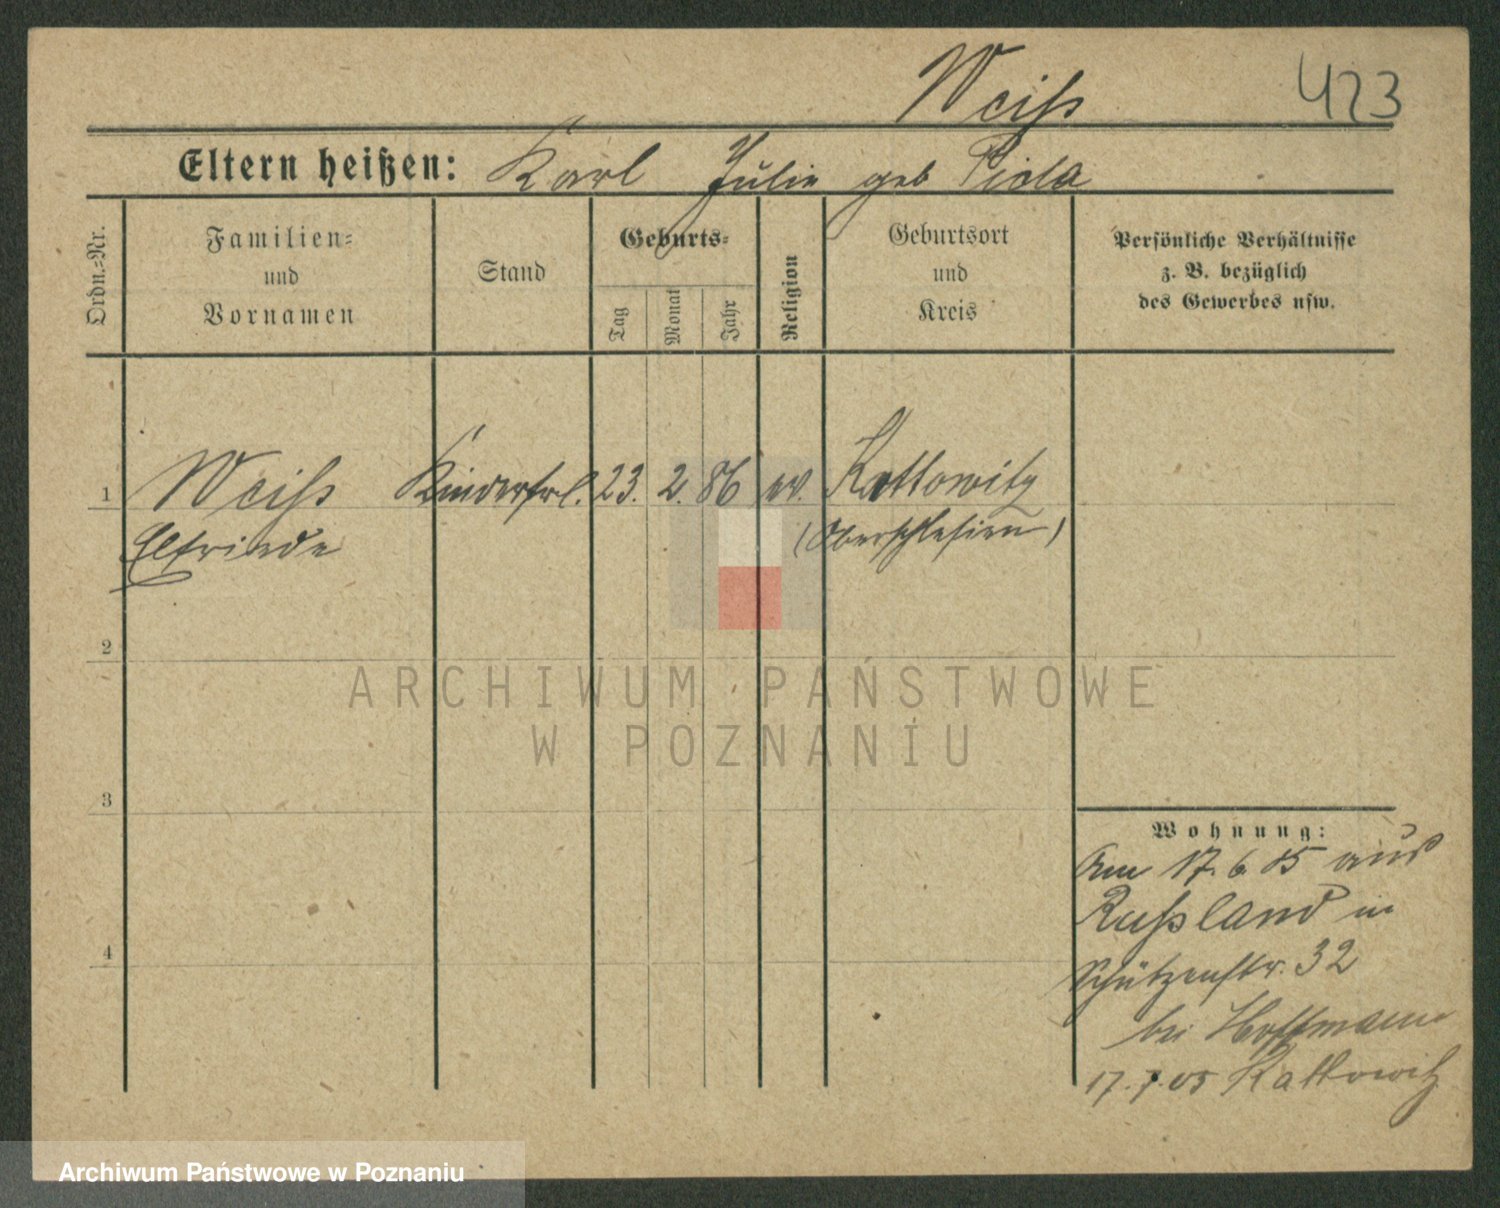 Weiss 423
Eltern heißen: Karl Julie geb Piola
Ordn.=Nr.
Familien=
und
Vornamen
Stand
Geburts=
Tag Monat Jahr
Religion
Geburtsort
und
Kreis
Persönliche Verhältnisse
z. B. bezüglich
des Gewerbes usw.
1 Weiss Kinderfrl. 23. 2. 86 ev. Kattowitz
Elfriede (Oberschlesien)
2
3
4
Wohnung:
Am 17. 6. 05 aus
Russland in
Schützenstr. 32
bei Hoffmann
17. 7. 05 Kattowitz
ARCHIWUM PAŃSTWOWE
W POZNANIU
Archiwum Państwowe w Poznaniu